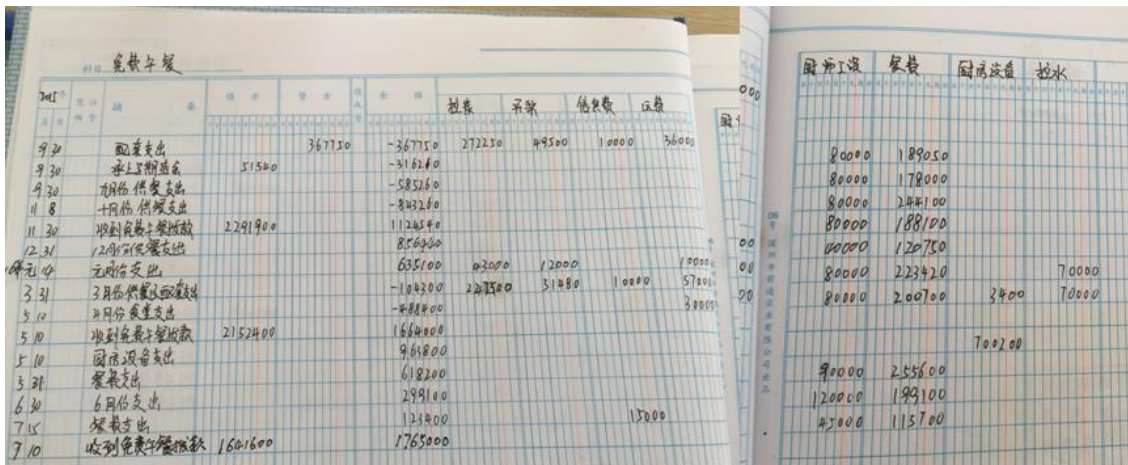 科目 免费午餐
2015年 摘 要 借 方 贷 方 余 额 担农 吊钦 信息费 运费
月 日
9 30 配套支出 367750 -367750 272250 49500 10000 36000
9 30 承上学期结余 51540 -316210
9 30 九月份供餐支出 -585260
11 8 十月份供餐支出 -843260
11 30 收到免费午餐拨款 2291900 1124540
12 31 12月份供餐支出 856440
元 14 元月份支出 635100 43000 12000 10000
3 31 3月份供餐及配套支出 -104300 31480 10000 57000
5 10 4月份食堂支出 -488400 30000
5 10 收到免费午餐拨款 2152400 1664000
5 10 厨房设备支出 963800
5 31 餐费支出 618200
6 30 6月份支出 299100
7 15 餐费支出 123400 15000
9 10 收到免费午餐拨款 1641600 1765000
厨师工资 餐费 厨房设备 挖水
80000 189050
80000 178000
80000 244100
80000 188100
40000 120750
80000 223420 70000
80000 200700 3400 70000
700200
90000 255600
120000 199100
45000 115700